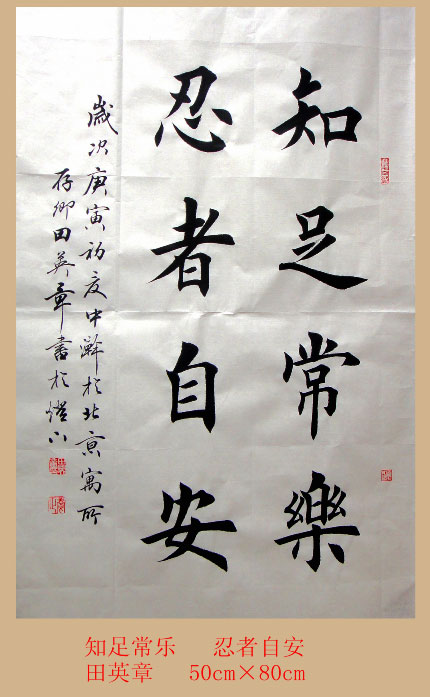 知足常樂
忍者自安
歲次庚寅初夏中澣於北京寓所
存卿田英章書於燈下
知足常乐 忍者自安
田英章 50cm×80cm